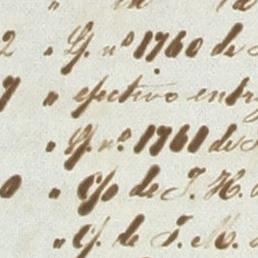 2 " L. nº 1760 de
7 " efectivo entre
" L. nº 1761 de
0 " C/o de J. H.
" C/. de J. M.